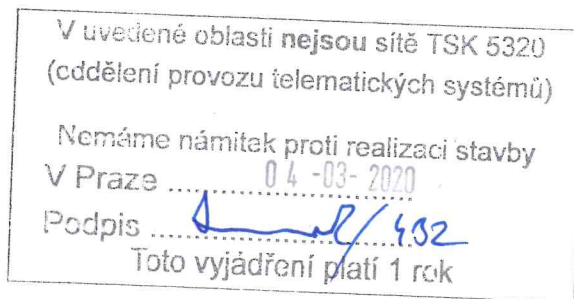 V uvedené oblasti nejsou sítě TSK 5320
(oddělení provozu telematických systémů)
Nemáme námitek proti realizaci stavby
V Praze ............ 04 -03- 2020
Podpis ............ /432
Toto vyjádření platí 1 rok